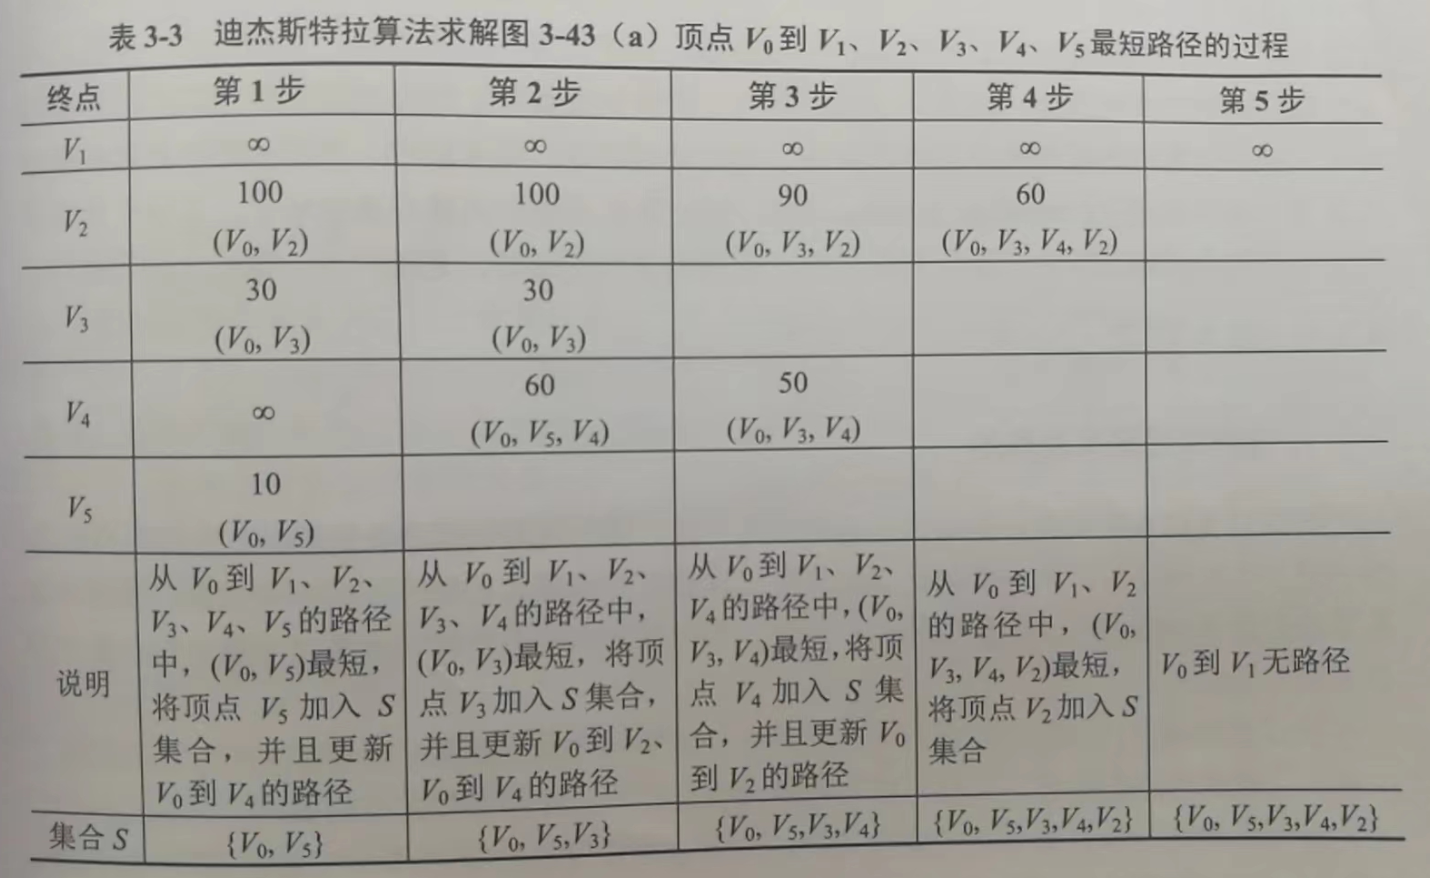 表 3-3 迪杰斯特拉算法求解图 3-43（a）顶点 V₀ 到 V₁、V₂、V₃、V₄、V₅ 最短路径的过程
终点 第 1 步 第 2 步 第 3 步 第 4 步 第 5 步
V₁ ∞ ∞ ∞ ∞ ∞
V₂
100
(V₀, V₂)
100
(V₀, V₂)
90
(V₀, V₃, V₂)
60
(V₀, V₃, V₄, V₂)
V₃
30
(V₀, V₃)
30
(V₀, V₃)
V₄
∞
60
(V₀, V₅, V₄)
50
(V₀, V₃, V₄)
V₅
10
(V₀, V₅)
说明
从 V₀ 到 V₁、V₂、
V₃、V₄、V₅ 的路径
中，(V₀, V₅)最短，
将顶点 V₅ 加入 S
集合，并且更新
V₀ 到 V₄ 的路径
从 V₀ 到 V₁、V₂、
V₃、V₄ 的路径中，
(V₀, V₃)最短，将顶
点 V₃ 加入 S 集合，
并且更新 V₀ 到 V₂、
V₀ 到 V₄ 的路径
从 V₀ 到 V₁、V₂、
V₄ 的路径中，(V₀,
V₃, V₄)最短，将顶
点 V₄ 加入 S 集
合，并且更新 V₀
到 V₂ 的路径
从 V₀ 到 V₁、V₂
的路径中，(V₀,
V₃, V₄, V₂)最短，
将顶点 V₂ 加入 S
集合
V₀ 到 V₁ 无路径
集合 S {V₀, V₅} {V₀, V₅,V₃} {V₀, V₅,V₃,V₄} {V₀, V₅,V₃,V₄,V₂} {V₀, V₅,V₃,V₄,V₂}